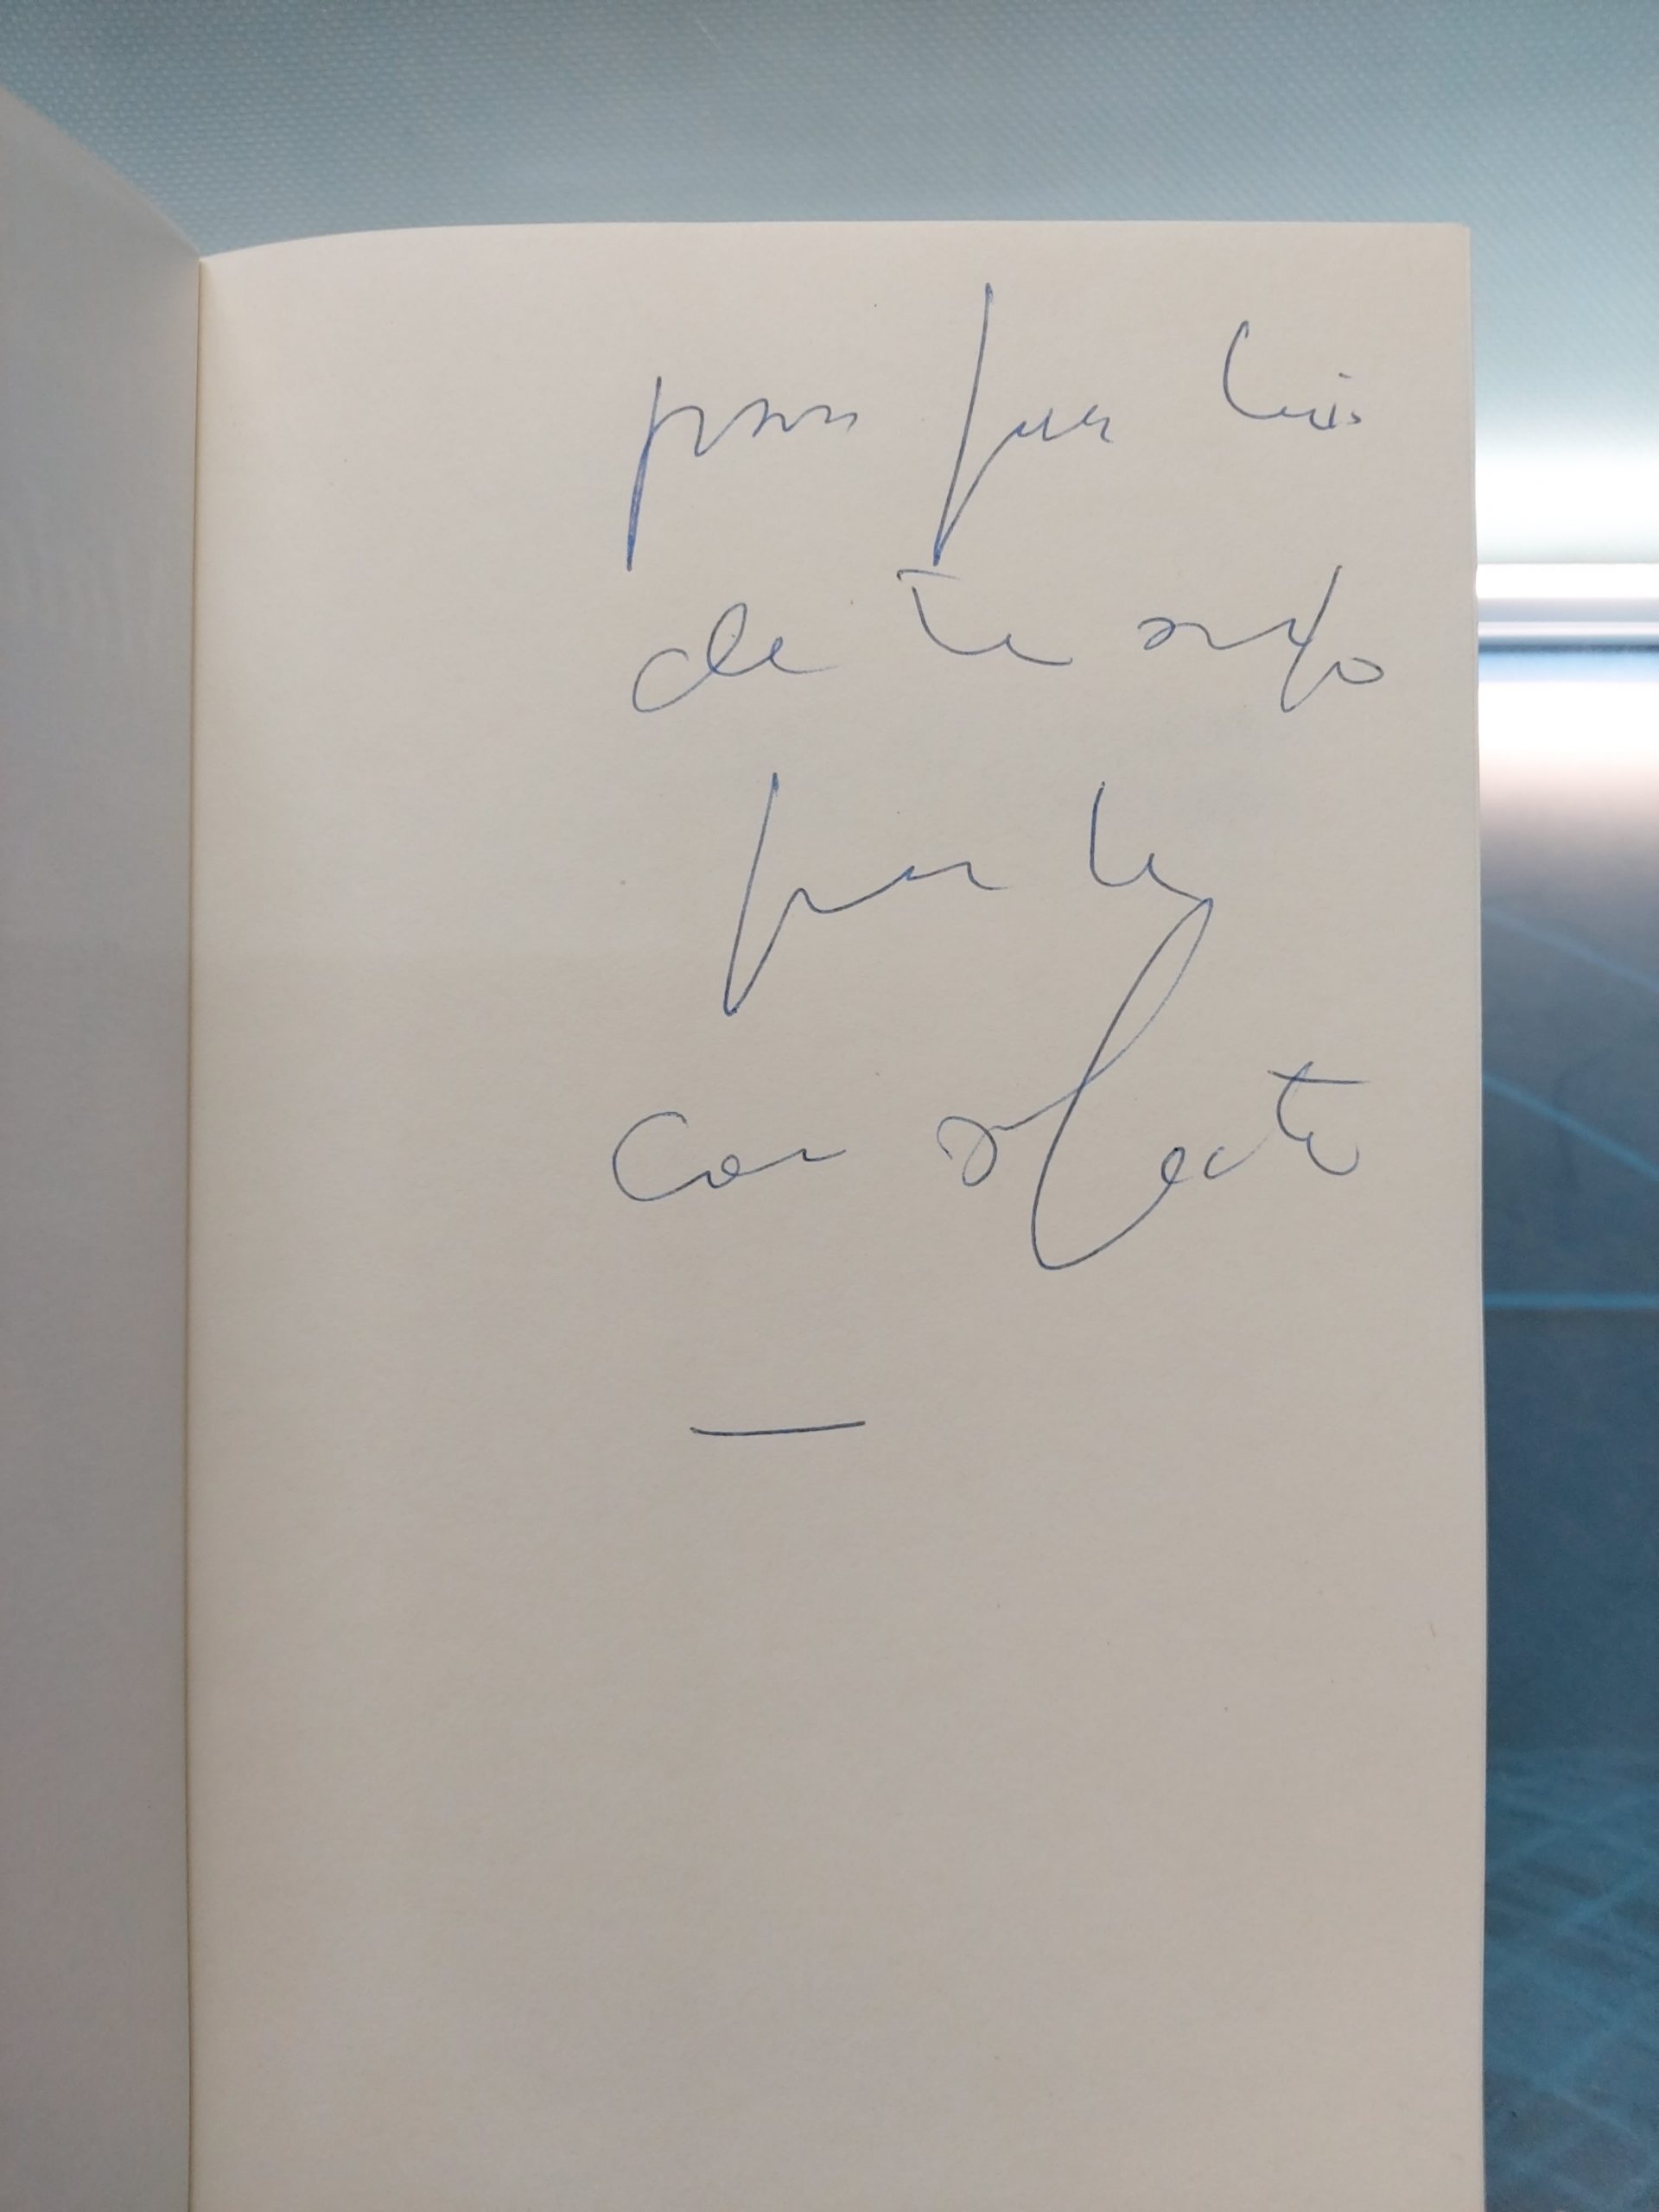 para Juan Luis
de tu amigo
Juan Luis
con afecto